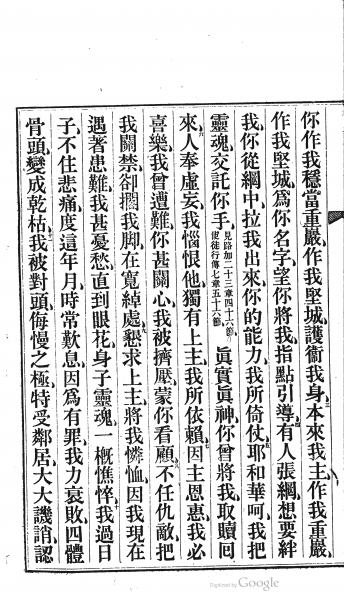 你作我穩當重嚴、作我堅城護衞我身、本來我主、作我重嚴、
作我堅城、爲你名字、望你將我指點引導、有人張網、想要絆
我、你從網中、拉我出來、你的能力、我所倚仗、耶和華呵、我把
靈魂、交託你手、見路加二十三章四十六節使徒行傳七章五十六節眞實眞神、你曾將我取贖囘
來、人奉虛妄、我惱恨他、獨有上主、我所依賴、因主恩惠、我必
喜樂、我曾遭難、你甚關心、我被擠壓、蒙你看顧、不任仇敵、把
我關禁、卻擱我脚、在寬綽處、懇求上主、將我憐恤、因我現在
遇著患難、我甚憂愁、直到眼花、身子靈魂、一概憔悴、我過日
子、不住悲痛、度這年月、時常歎息、因爲有罪、我力衰敗、四體
骨頭、變成乾枯、我被對頭、侮慢之極、特受鄰居、大大譏誚、認
Digitized by Google